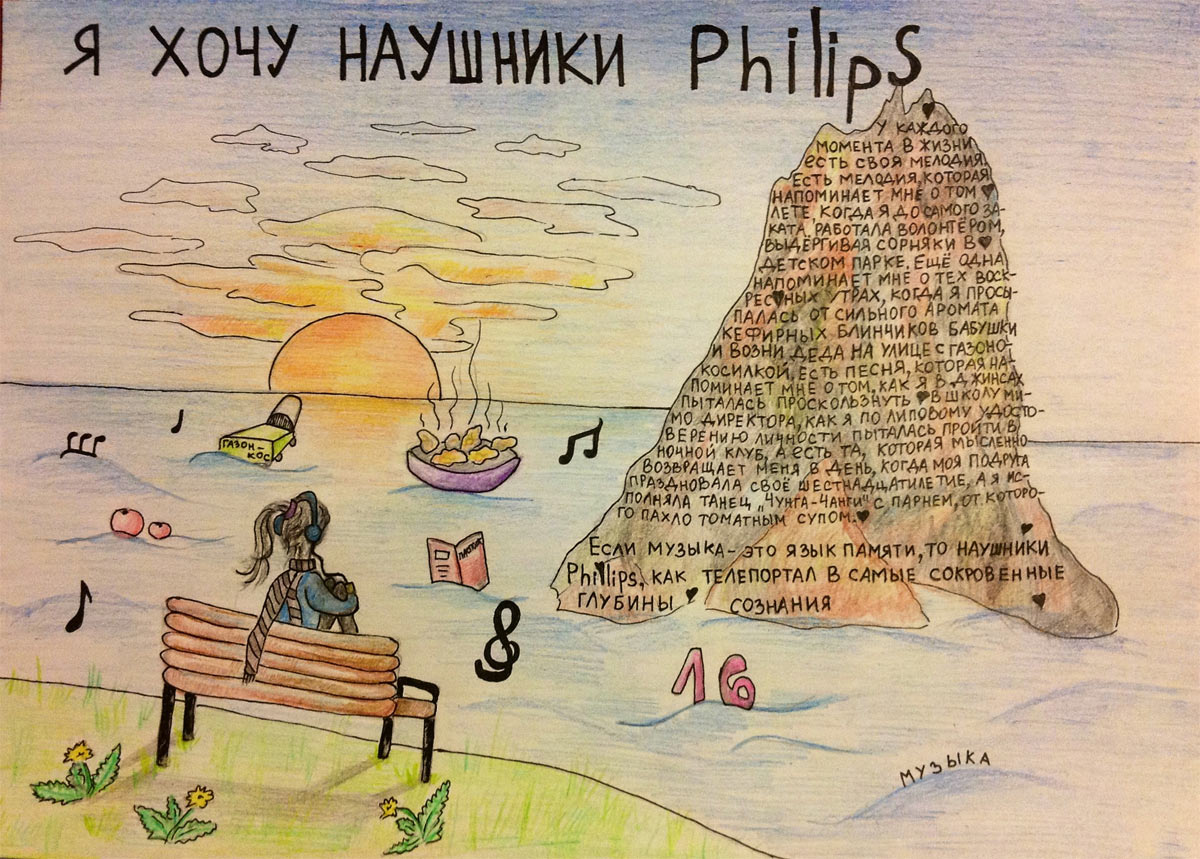 Я ХОЧУ НАУШНИКИ Philips
У КАЖДОГО
МОМЕНТА В ЖИЗНИ
ЕСТЬ СВОЯ МЕЛОДИЯ.
ЕСТЬ МЕЛОДИЯ, КОТОРАЯ
НАПОМИНАЕТ МНЕ О ТОМ
ЛЕТЕ, КОГДА Я ДО САМОГО ЗА-
КАТА РАБОТАЛА ВОЛОНТЁРОМ,
ВЫДЁРГИВАЯ СОРНЯКИ В
ДЕТСКОМ ПАРКЕ. ЕЩЁ ОДНА
НАПОМИНАЕТ МНЕ О ТЕХ ВОСК-
РЕСНЫХ УТРАХ, КОГДА Я ПРОСЫ-
ПАЛАСЬ ОТ СИЛЬНОГО АРОМАТА
КЕФИРНЫХ БЛИНЧИКОВ БАБУШКИ
И ВОЗНИ ДЕДА НА УЛИЦЕ С ГАЗОНО-
КОСИЛКОЙ. ЕСТЬ ПЕСНЯ, КОТОРАЯ НА-
ПОМИНАЕТ МНЕ О ТОМ, КАК Я В ДЖИНСАХ
ПЫТАЛАСЬ ПРОСКОЛЬЗНУТЬ В ШКОЛУ МИ-
МО ДИРЕКТОРА, КАК Я ПО ЛИПОВОМУ УДОСТО-
ВЕРЕНИЮ ЛИЧНОСТИ ПЫТАЛАСЬ ПРОЙТИ В
НОЧНОЙ КЛУБ, А ЕСТЬ ТА, КОТОРАЯ МЫСЛЕННО
ВОЗВРАЩАЕТ МЕНЯ В ДЕНЬ, КОГДА МОЯ ПОДРУГА
ПРАЗДНОВАЛА СВОЁ ШЕСТНАДЦАТИЛЕТИЕ, А Я ИС-
ПОЛНЯЛА ТАНЕЦ „ЧУНГА-ЧАНГИ" С ПАРНЕМ, ОТ КОТОРО-
ГО ПАХЛО ТОМАТНЫМ СУПОМ.
ЕСЛИ МУЗЫКА - ЭТО ЯЗЫК ПАМЯТИ, ТО НАУШНИКИ
Phillips, КАК ТЕЛЕПОРТАЛ В САМЫЕ СОКРОВЕННЫЕ
ГЛУБИНЫ СОЗНАНИЯ
ГАЗОН-
КОС
16
МУЗЫКА